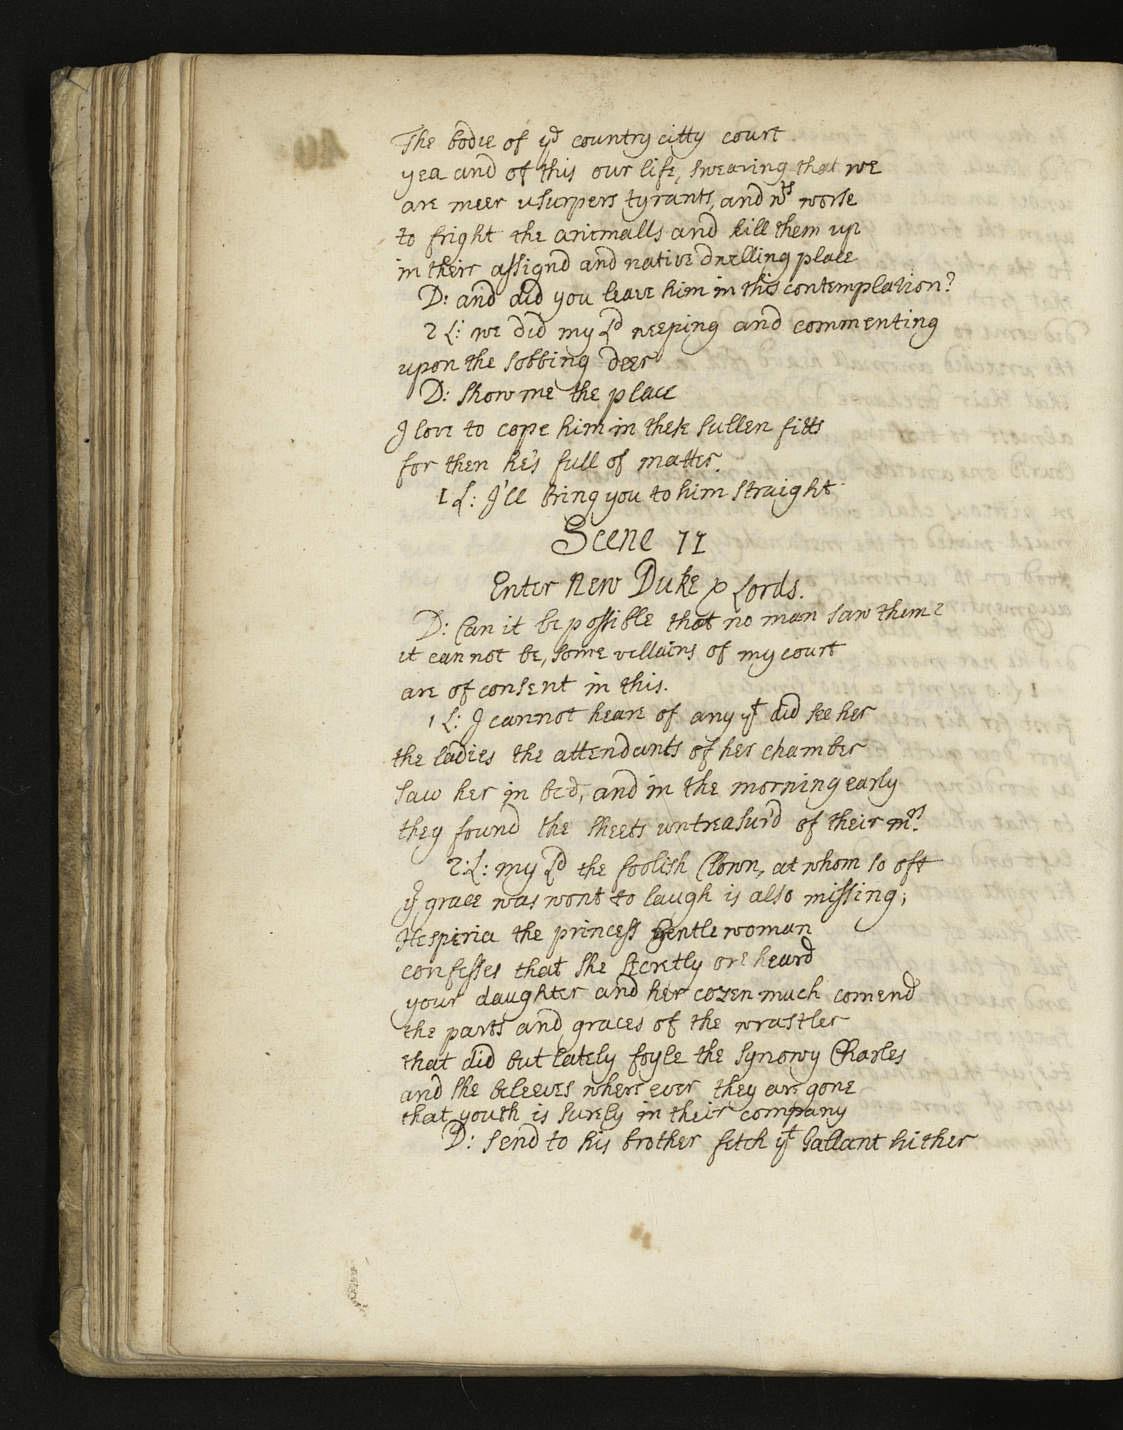 The bodie of yd country citty court
yea and of this our life, swearing that we
are meer usurpers tyrants, and wts worse
to fright the animalls and kill them up
in their assignd and native dwelling place
D: and did you leave him in this contemplation?
2 L: we did my Ld weeping and commenting
upon the sobbing deer
D: show me the place
I love to cope him in these sullen fitts
for then he's full of matter.
1 L: I'll bring you to him straight.
Scene 11
Enter New Duke & Lords.
D: Can it be possible that no man saw them?
it cannot be, some villains of my court
are of consent in this.
1 L: I cannot heare of any yt did see her
the ladies the attendants of her chamber
saw her in bed, and in the morning early
they found the sheets untreasur'd of their mrs.
2: L: my Ld the foolish Clown, at whom so oft
yr grace was wont to laugh is also missing;
Hesperia the princess gentlewoman
confesses that she secretly ore heard
your daughter and her cozen much comend
the parts and graces of the wrastler
that did but lately foyle the synowy Charles
and she beleeves where ever they are gone
that youth is surely in their company
D: send to his brother fetch yt Gallant hither